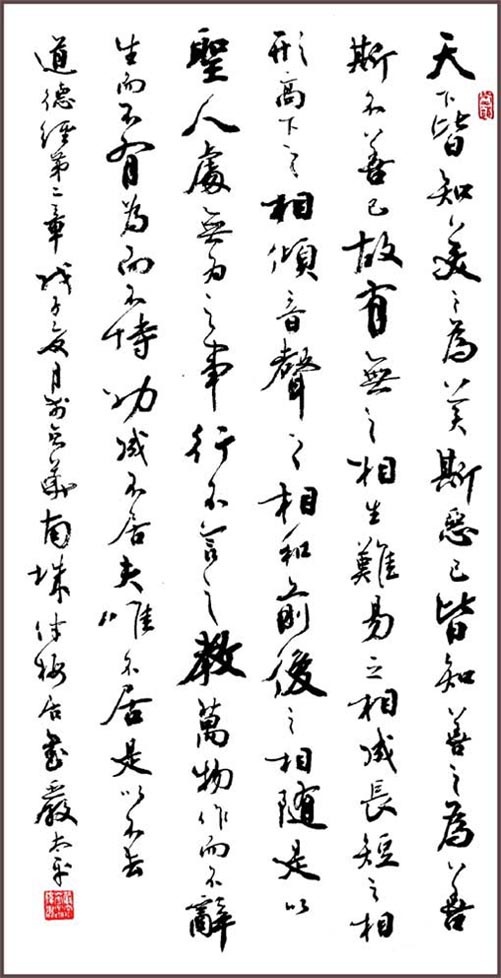 天下皆知美之為美斯惡已皆知善之為善
斯不善已故有無之相生難易之相成長短之相
形高下之相傾音聲之相和前後之相随是以
聖人處無為之事行不言之教萬物作而不辭
生而不有為而不恃功成不居夫唯不居是以不去
道德經第二章戊子夏月南珠梅居嚴